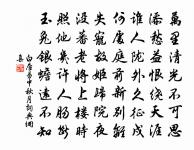 萬里清光不可思
添愁益恨繞天涯
誰人隴外久征戍
何處庭前新別離
失寵故姬歸院夜
沒蕃老將上樓時
照他幾許人腸斷
玉兔銀蟾遠不知
白居易中秋月詞典網
集